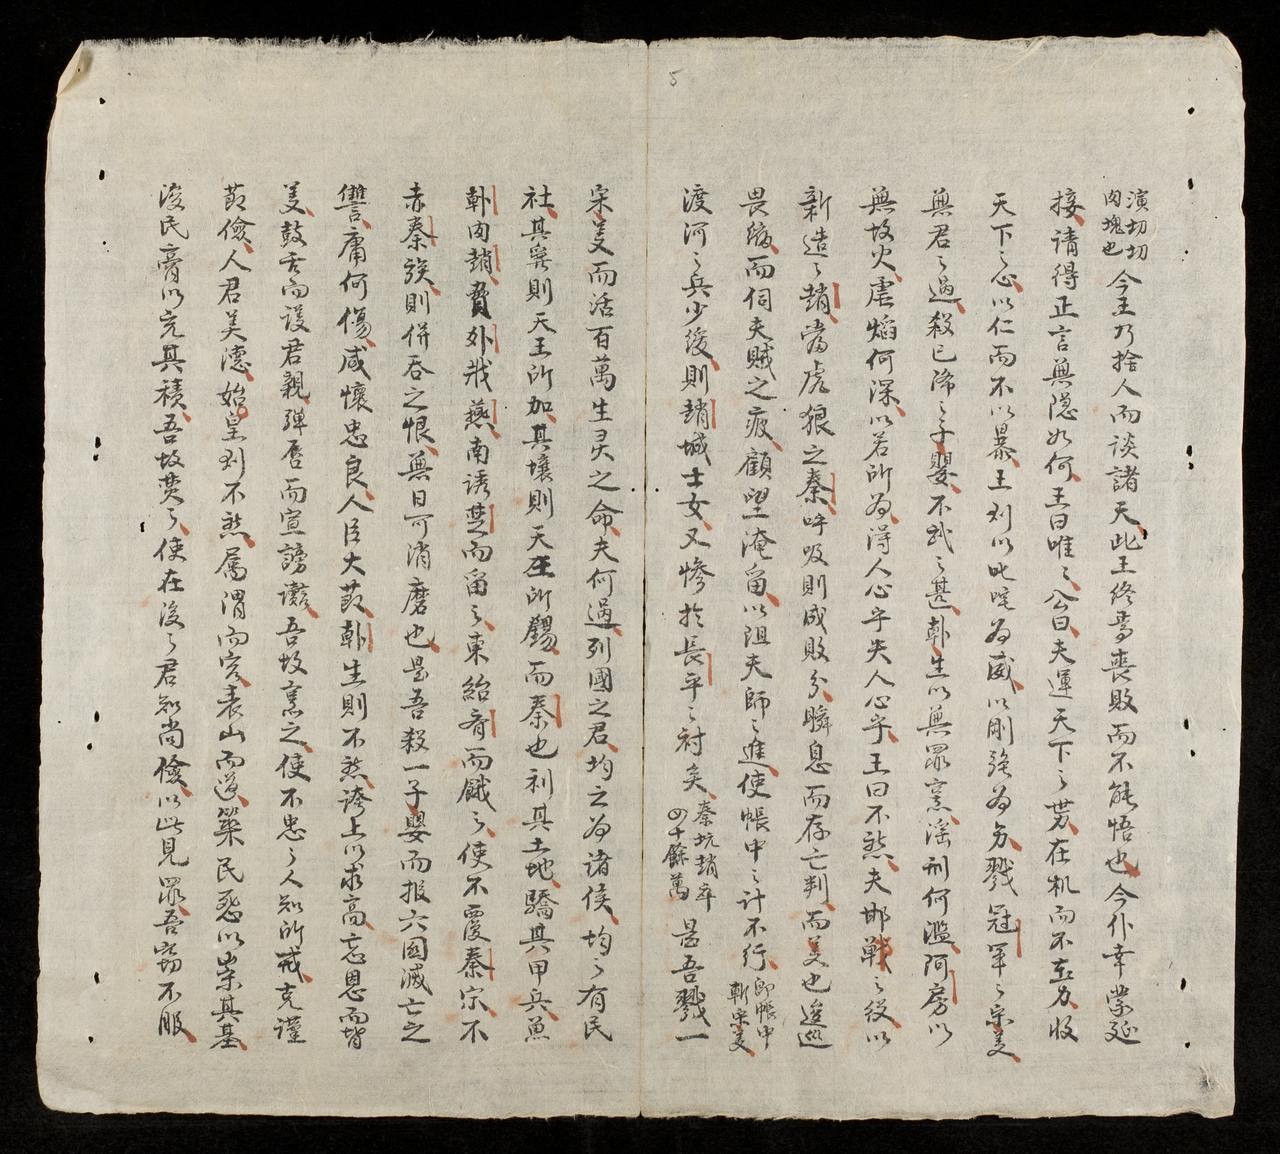 演切切
肉塊也
今王乃捨人而談諸天此王終焉喪敗而不能悟也今仆幸蒙延
接請得正言無隠如何王曰唯々公曰夫運天下之势在机而不在力收
天下之心以仁而不以暴王則以叱咤為威以剛強為勇戮冠軍之宋義
無君之過殺已降之子嬰不武之甚韓生以無罪烹淫刑何濫阿房以
無故火虐焰何深以若所為得人心乎失人心乎王曰不然夫邯鄲之役以
新造之趙當虎狼之秦呼吸則成敗分瞬息而存亡判而義也逡巡
畏縮而伺夫賊之疲顧望淹留以阻夫師之進使帳中之計不行
即帳中
斬宋義
渡河之兵少緩則趙城士女又慘於長平之衬矣
秦坑趙卒
四十餘萬
是吾戮一
宋義而活百萬生灵之命夫何過列國之君均之為諸侯均之有民
社其寀則天王所加其壤則天王所錫而秦也利其土地驕其甲兵魚
韓肉趙賁外哉燕南誘楚而留之東紿齊而餓之使不覆秦宗不
赤秦族則併吞之恨無日可消磨也是吾殺一子嬰而报六國滅亡之
讐庸何傷咸懷忠良人臣大莭韓生則不然誇上以求高忘恩而背
義鼓舌而議君親弹唇而宣謗讟吾故烹之使不忠之人知所戒克謹
莭儉人君美德始皇則不然属渭而宮表山而道築民怨以崇其基
浚民膏以充其積吾故焚之使在後之君知尚儉以此見罪吾窃不服